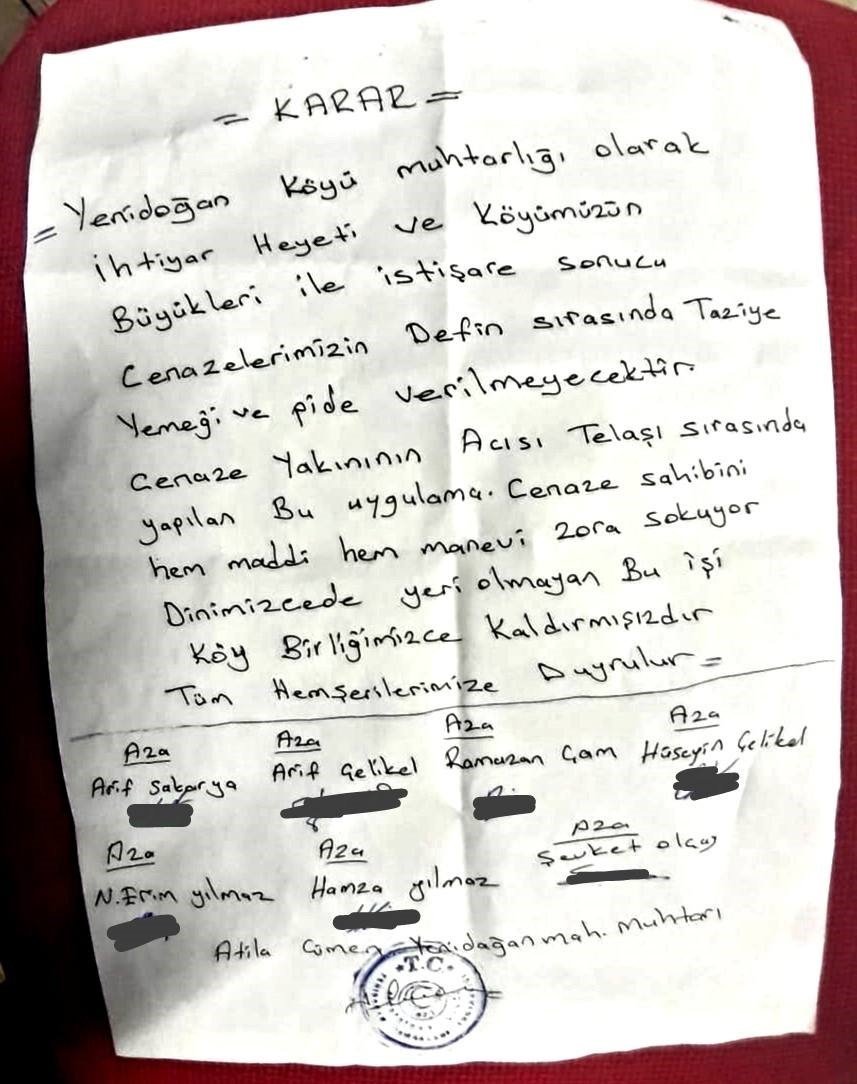 = KARAR =
= Yenidoğan Köyü muhtarlığı olarak
ihtiyar Heyeti ve Köyümüzün
Büyükleri ile istişare sonucu
Cenazelerimizin Defin sırasında Taziye
Yemeği ve pide verilmeyecektir
Cenaze Yakınının Acısı Telaşı sırasında
yapılan Bu uygulama. Cenaze sahibini
hem maddi hem manevi zora sokuyor
Dinimizcede yeri olmayan Bu işi
Köy Birliğimizce Kaldırmışızdır
Tüm Hemşerilerimize Duyrulur =
Aza Aza Aza Aza
Arif Sakarya Arif Çelikel Ramazan Çam Hüseyin Çelikel
Aza Aza Aza
N. Erim yılmaz Hamza yılmaz Şevket olcay
Atila Yenidağan mah. Muhtarı
T.C.